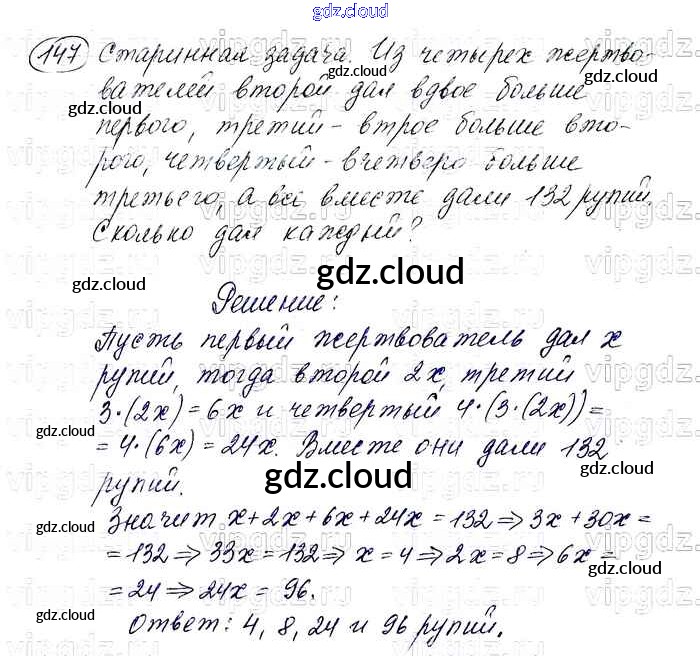 gdz.cloud
147 Старинная задача. Из четырех жертво-
вателей второй дал вдвое больше
первого, третий - втрое больше вто-
рого, четвертый - вчетверо больше
третьего, а все вместе дали 132 рупий.
Сколько дал каждый?
gdz.cloud
Решение:
Пусть первый жертвователь дал x
рупий, тогда второй 2x, третий
3·(2x) = 6x и четвертый 4·(3·(2x)) =
= 4·(6x) = 24x. Вместе они дали 132
рупий.
gdz.cloud
Значит, x + 2x + 6x + 24x = 132 ⇒ 3x + 30x =
= 132 ⇒ 33x = 132 ⇒ x = 4 ⇒ 2x = 8 ⇒ 6x =
= 24 ⇒ 24x = 96.
Ответ: 4, 8, 24 и 96 рупий.